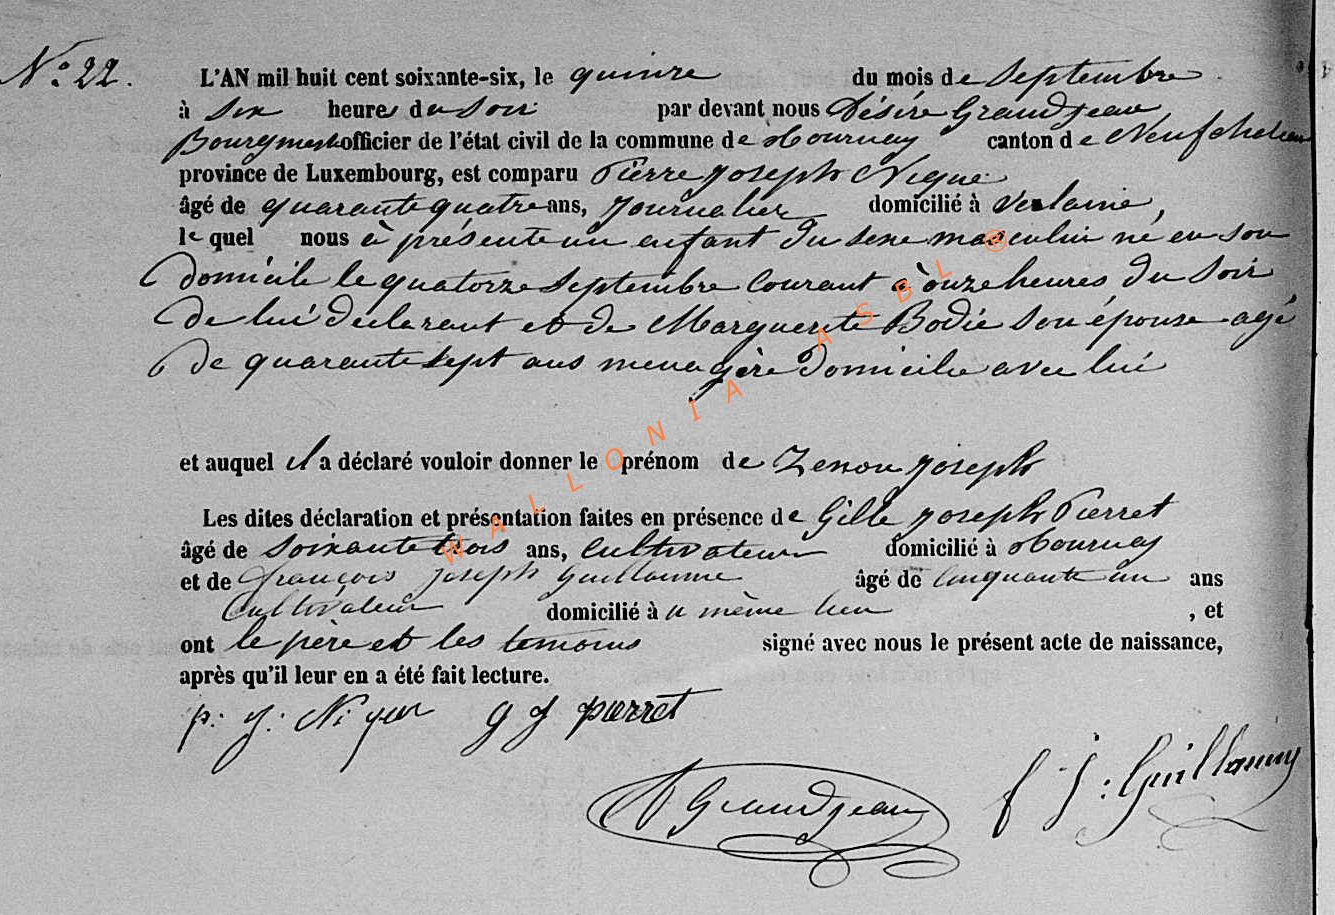 N.° 22.
L'AN mil huit cent soixante-six, le quinze du mois de Septembre
à six heures du Soir par devant nous Désiré Grandjean
Bourgmestre officier de l'état civil de la commune de Tournay canton de Neufchateau
province de Luxembourg, est comparu Pierre Joseph Nigue
âgé de quarante quatre ans, journalier domicilié à Verlaine,
lequel nous a présenté un enfant du sexe masculin né en son
domicile le quatorze Septembre courant à onze heures du Soir
de lui déclarant et de Marguerite Bodie son épouse agé
de quarante sept ans menagère domicilie avec lui
et auquel il a déclaré vouloir donner le prénom de Zenon Joseph
Les dites déclaration et présentation faites en présence de Gille Joseph Pierret
âgé de soixante trois ans, cultivateur domicilié à Tournay
et de françois Joseph Guillaume âgé de cinquante un ans
Cultivateur domicilié à u même lieu , et
ont le père et les temoins signé avec nous le présent acte de naissance,
après qu'il leur en a été fait lecture.
p. j. Nigue g j pierret
D Grandjean f J : Guillaume
WALLONIA ASBL ®